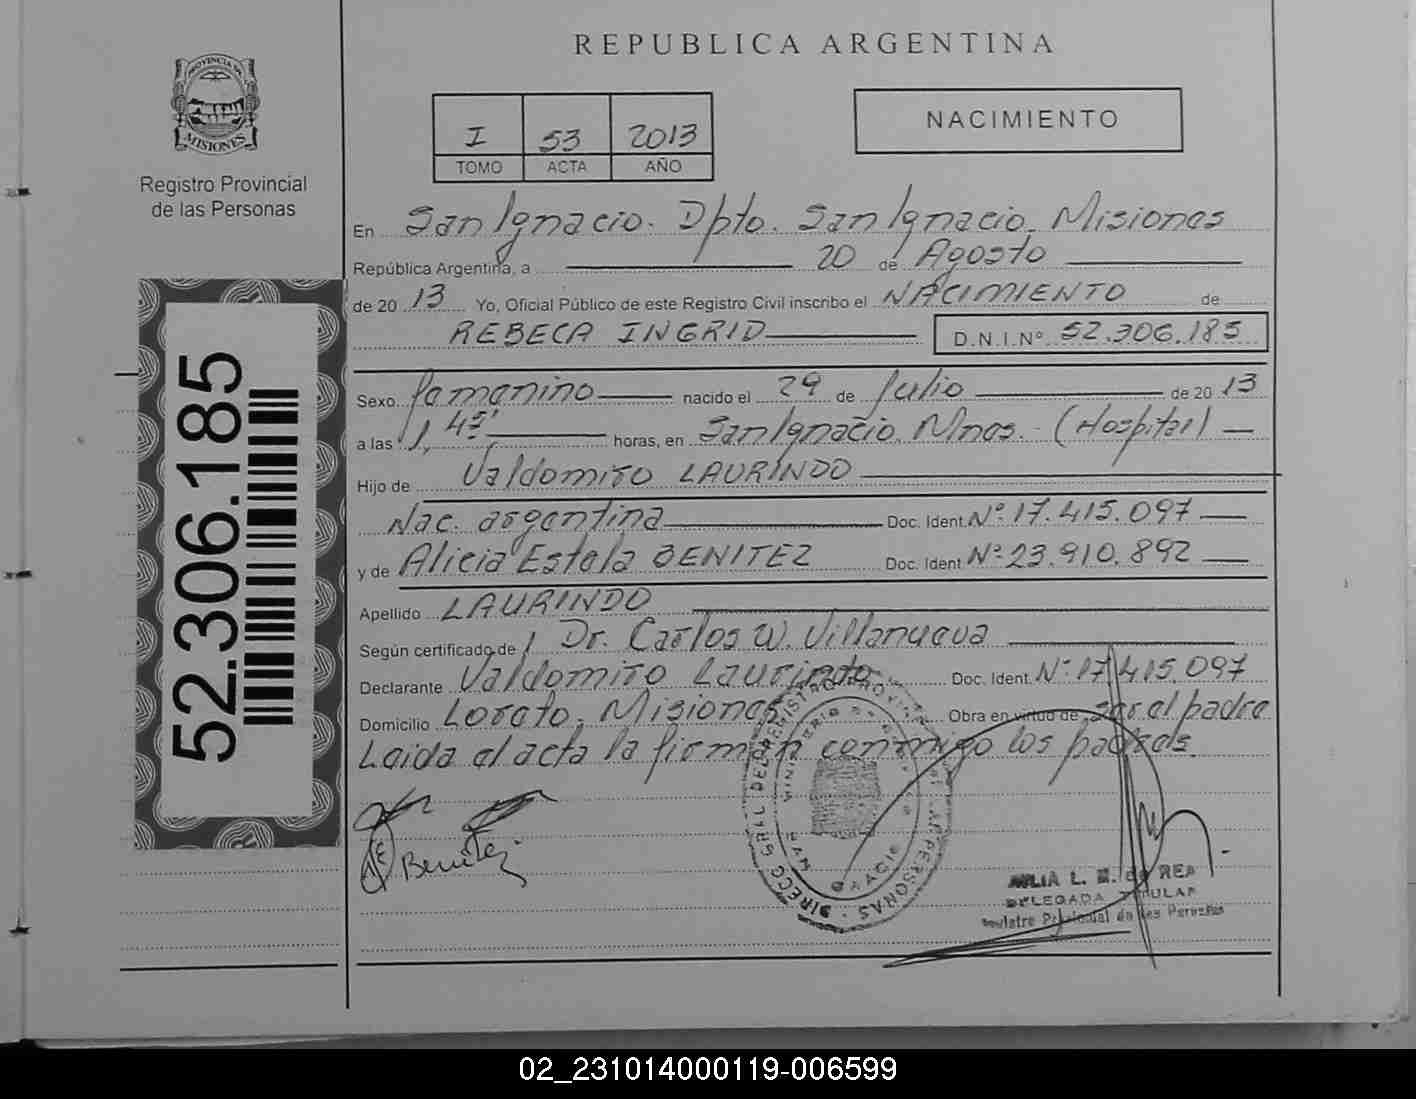 REPUBLICA ARGENTINA
PROVINCIA DE
MISIONES
Registro Provincial
de las Personas
I 53 2013
TOMO ACTA AÑO
NACIMIENTO
En San Ignacio. Dpto. San Ignacio. Misiones
República Argentina, a 20 de Agosto
de 20 13 Yo, Oficial Público de este Registro Civil inscribo el NACIMIENTO de
REBECA INGRID D.N.I.Nº 52.306.185
52.306.185
Sexo femenino nacido el 29 de Julio de 20 13
a las 1,45' horas, en San Ignacio. Mnes. (Hospital)
Hijo de Valdomiro LAURINDO
Nac. argentina Doc. Ident. Nº 17.415.097
y de Alicia Estela BENITEZ Doc. Ident. Nº 23.910.892
Apellido LAURINDO
Según certificado de Dr. Carlos W. Villanueva
Declarante Valdomiro Laurindo Doc. Ident. Nº 17.415.097
Domicilio Loreto, Misiones Obra en virtud de ser el padre
Leida el acta la firman conmigo los padres.
Benitez
DIRECC GRAL DEL REGISTRO PROVINCIAL PERSONAS
MINISTERIO DE
SAN IGNACIO
L. M. de REA
DELEGADA TITULAR
Registro Provincial de las Personas
02_231014000119-006599